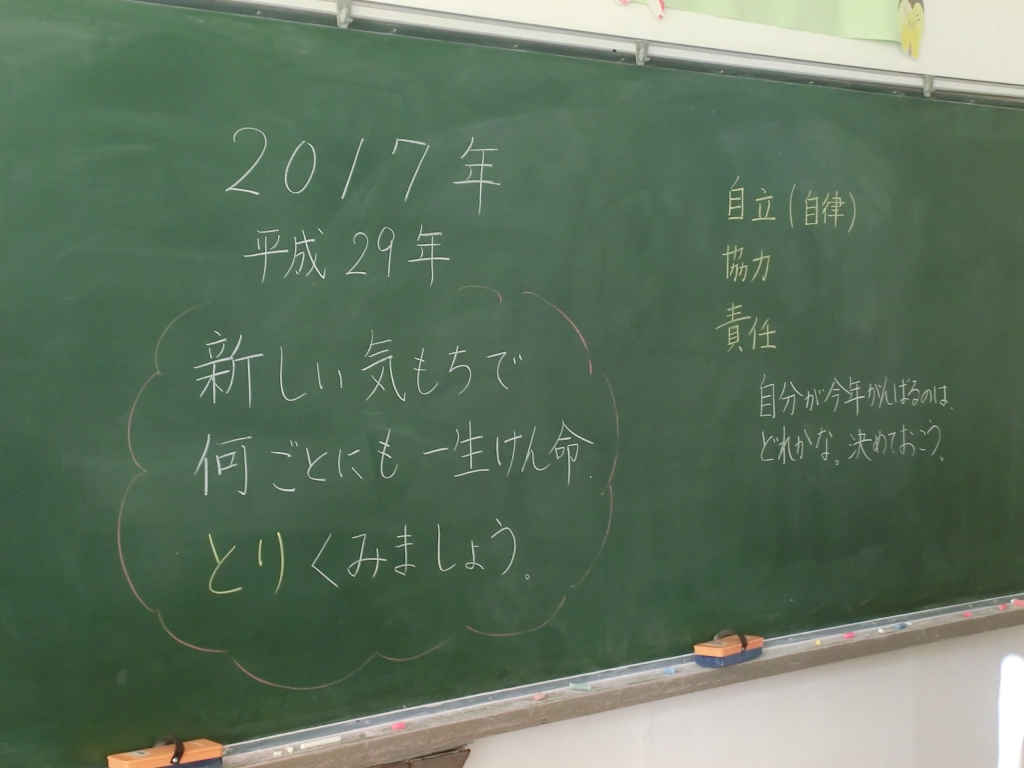 2017年
平成29年
新しい気もちで
何ごとにも一生けん命
とりくみましょう。
自立(自律)
協力
責任
自分が今年がんばるのは、
どれかな。決めておこう。